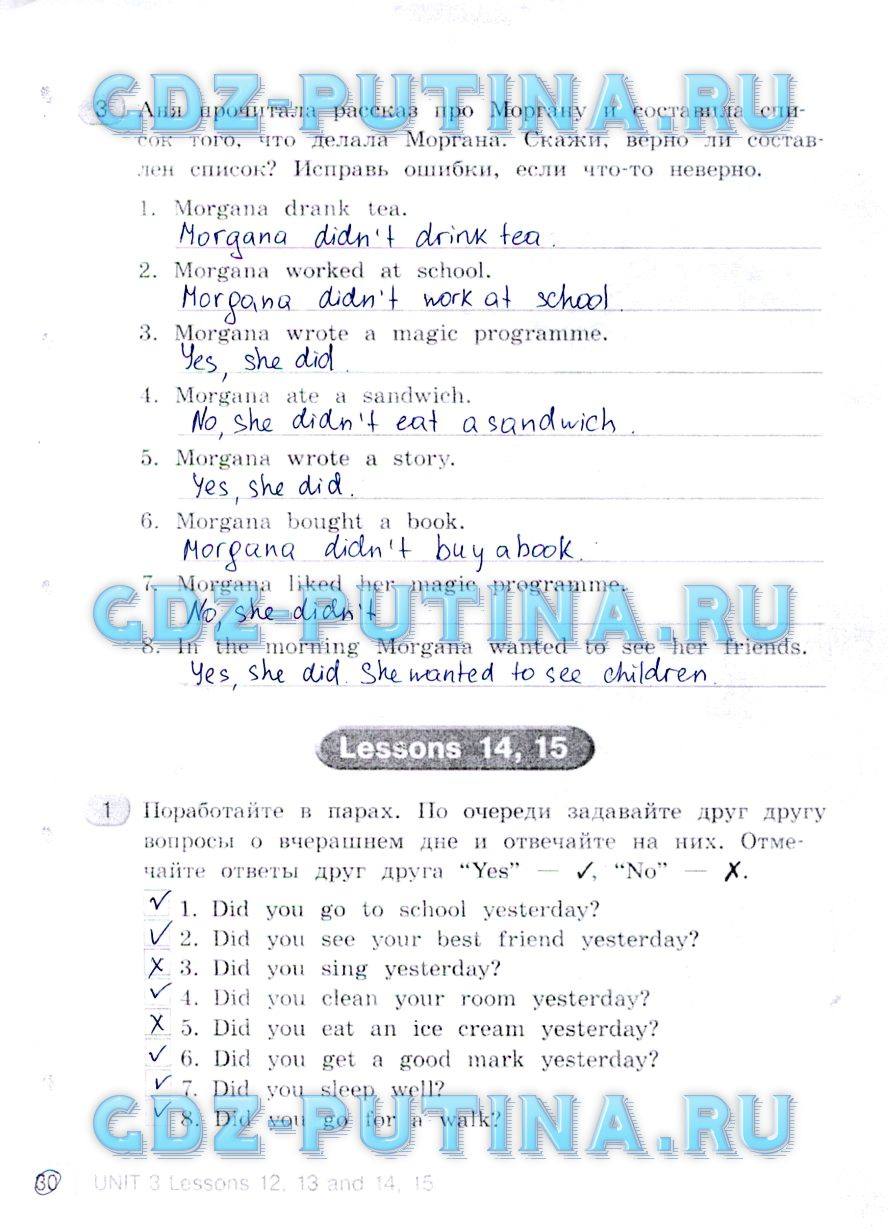 GDZ-PUTINA.RU
3 Аня прочитала рассказ про Моргану и составила спи-
сок того, что делала Моргана. Скажи, верно ли состав-
лен список? Исправь ошибки, если что-то неверно.
1. Morgana drank tea.
Morgana didn't drink tea.
2. Morgana worked at school.
Morgana didn't work at school.
3. Morgana wrote a magic programme.
Yes, she did.
4. Morgana ate a sandwich.
No, she didn't eat a sandwich.
5. Morgana wrote a story.
Yes, she did.
6. Morgana bought a book.
Morgana didn't buy a book.
7. Morgana liked her magic programme.
GDZ-PUTINA.RU
No, she didn't
8. In the morning Morgana wanted to see her friends.
Yes, she did. She wanted to see children.
Lessons 14, 15
1 Поработайте в парах. По очереди задавайте друг другу
вопросы о вчерашнем дне и отвечайте на них. Отме-
чайте ответы друг друга “Yes” — ✓, “No” — ✗.
✓ 1. Did you go to school yesterday?
✓ 2. Did you see your best friend yesterday?
✗ 3. Did you sing yesterday?
✓ 4. Did you clean your room yesterday?
✗ 5. Did you eat an ice cream yesterday?
✓ 6. Did you get a good mark yesterday?
✓ 7. Did you sleep well?
✓ 8. Did you go for a walk?
GDZ-PUTINA.RU
30 UNIT 3 Lessons 12, 13 and 14, 15